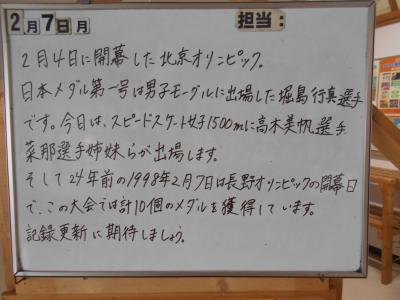 2月7日月 担当:
2月4日に開幕した北京オリンピック。
日本メダル第一号は男子モーグルに出場した堀島行真選手
です。今日は、スピードスケート女子1500mに高木美帆選手
菜那選手姉妹らが出場します。
そして24年前の1998年2月7日は長野オリンピックの開幕日
で、この大会では計10個のメダルを獲得しています。
記録更新に期待しましょう。